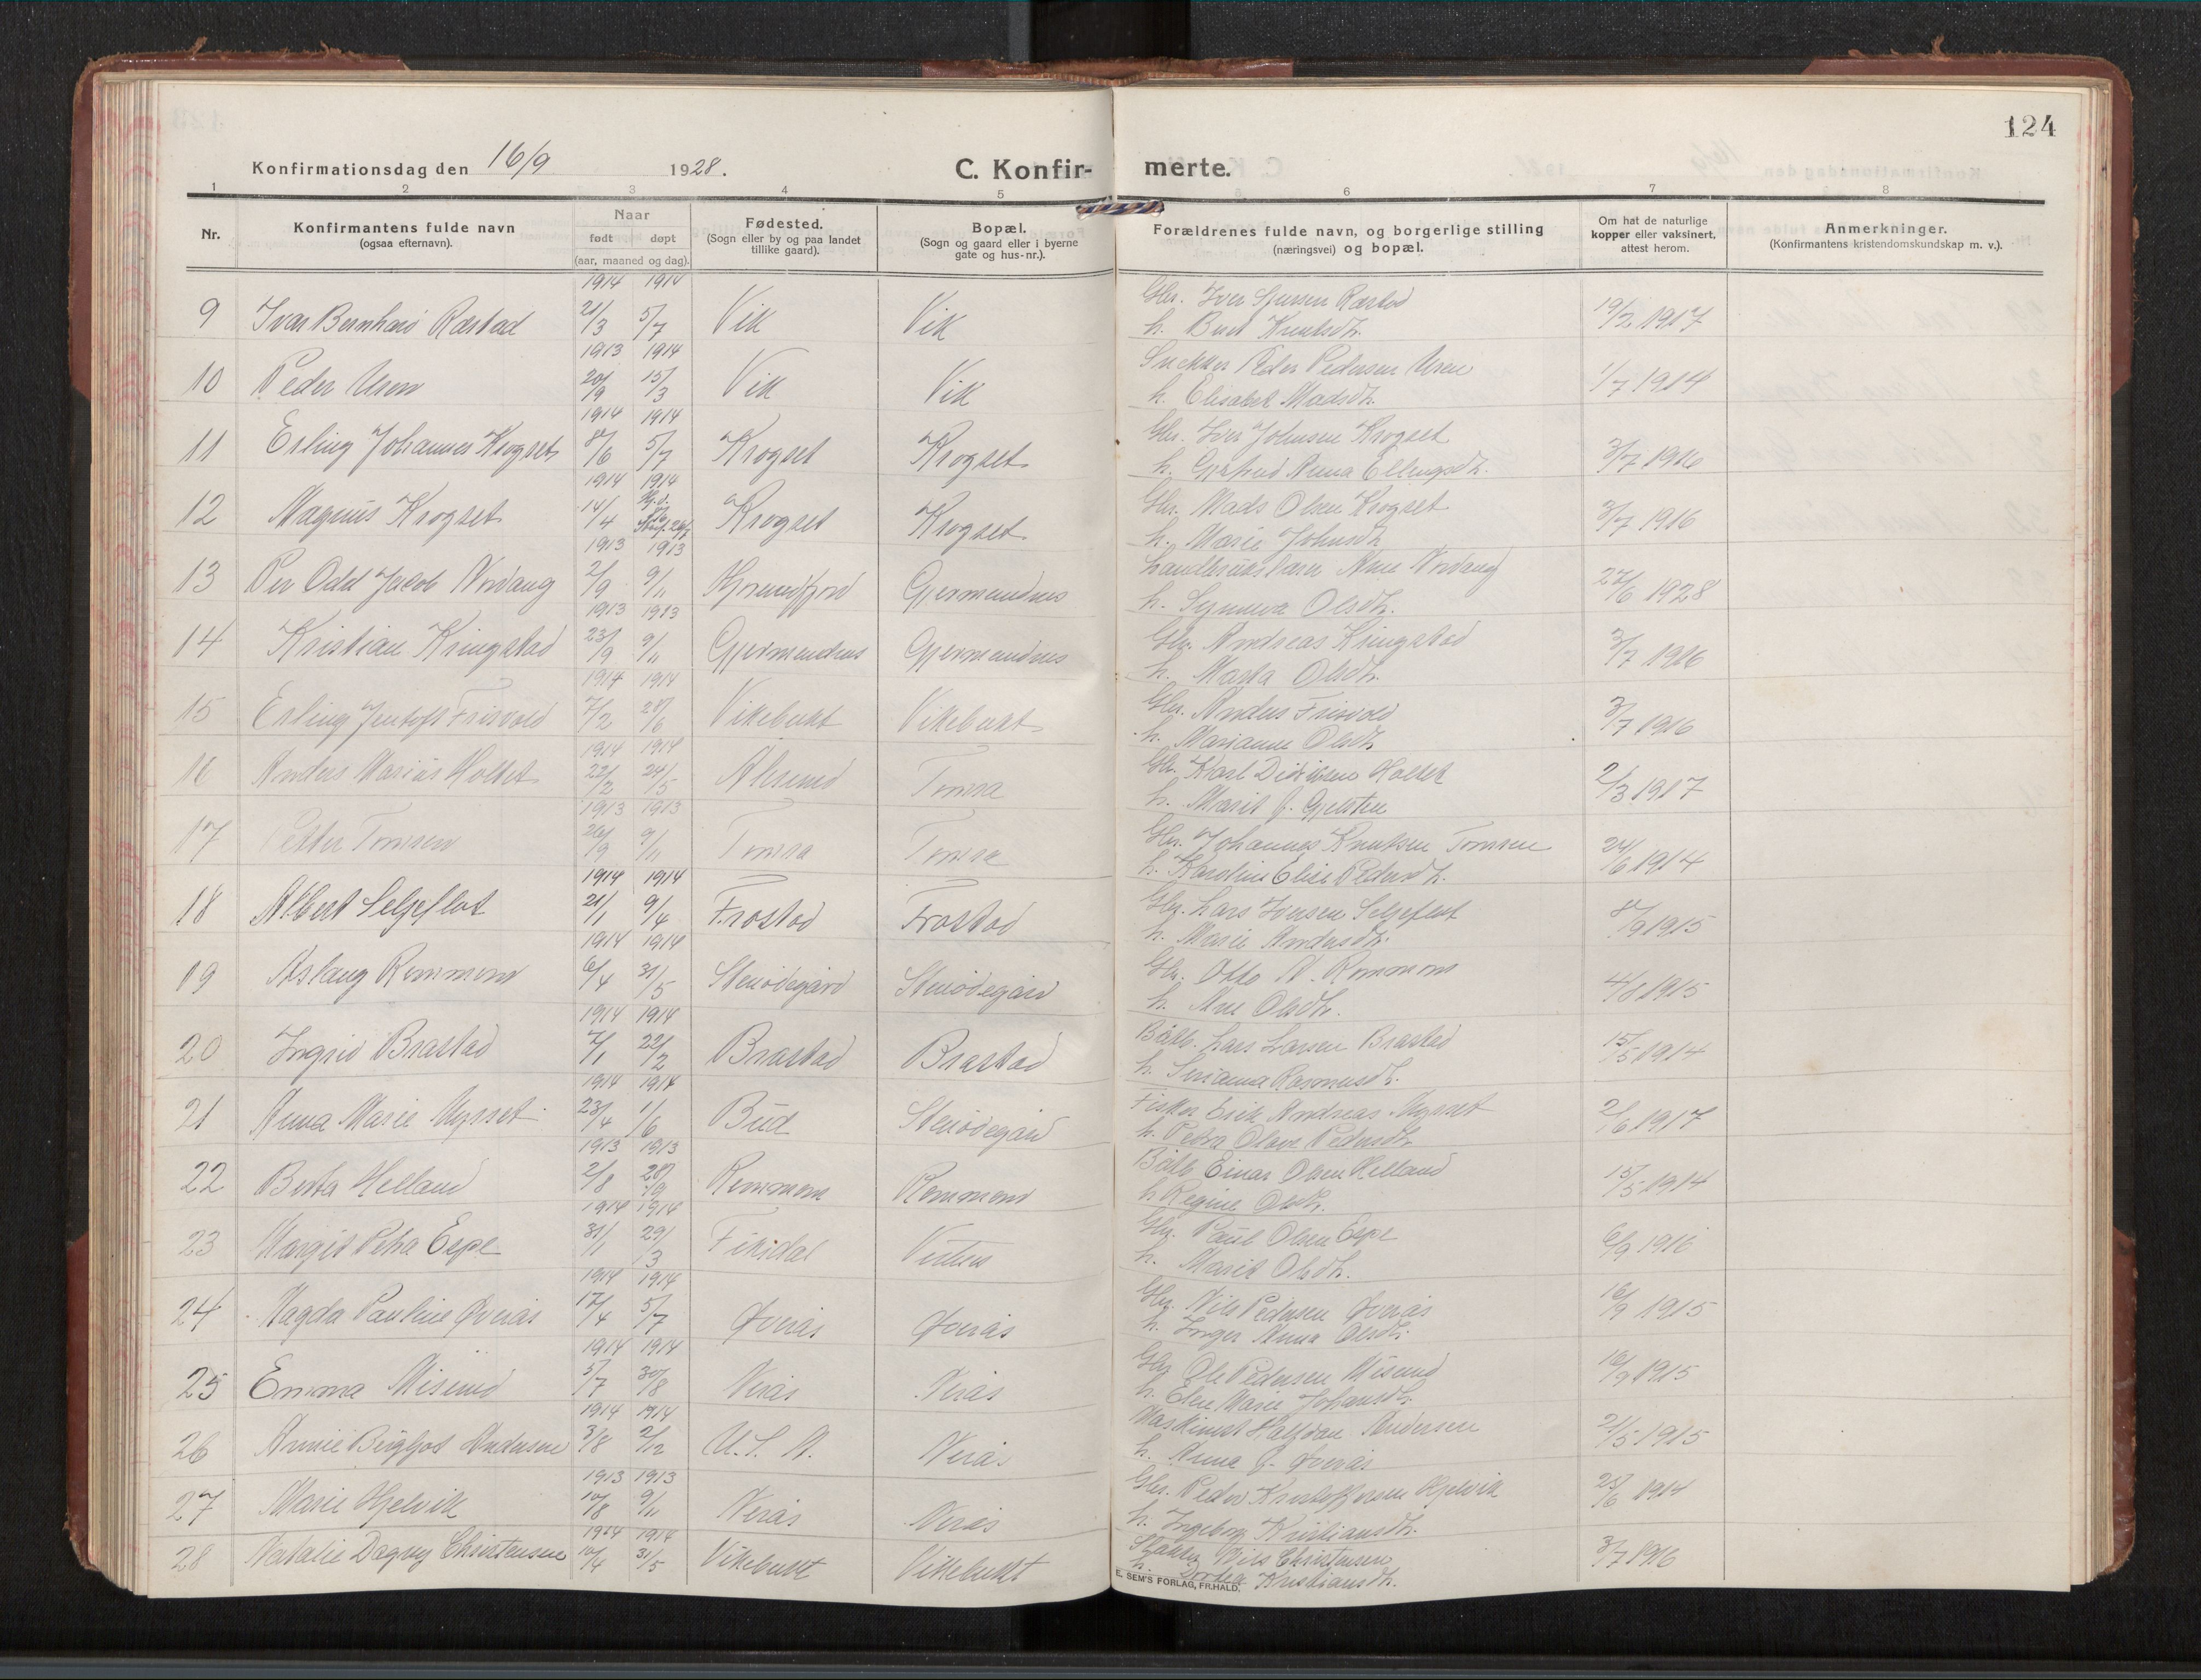 124
Konfirmationsdag den 16/9 1928.
C. Konfir- merte.
1 2 3 4 5 6 7 8
Nr.
Konfirmantens fulde navn
(ogsaa efternavn).
Naar
født døpt
(aar, maaned og dag).
Fødested.
(Sogn eller by og paa landet
tillike gaard).
Bopæl.
(Sogn og gaard eller i byerne
gate og hus-nr.).
Forældrenes fulde navn, og borgerlige stilling
(næringsvei) og bopæl.
Om hat de naturlige
kopper eller vaksinert,
attest herom.
Anmerkninger.
(Konfirmantens kristendomskundskap m. v.).
1914 1914
Gbr. Iver Rastad
9 Ivar Bernhard Rastad 21/3 5/7 Vik Vik 19/2 1917
h. Knutsdt.
1913 1914
Snekker Peder Pedersen Uren
10 Peder Uren 20/9 15/3 Vik Vik 1/7 1914
h. Elisabet Madsdt.
1914 1914
Gbr. Iver Johnsen Krogset
11 Erling Johannes Krogset 8/6 5/7 Krogset Krogset 3/7 1916
h. Anna Ellingsdt.
1914 1914
Gbr. Mads Olsen Krogset
12 Magnus Krogset 14/4 Krogset Krogset 3/7 1916
h. Marie Johnsdt.
1913 1913
13 Per Odd Jacob Nordang 2/9 9/11 Hjørundfjord Gjermundnes 27/6 1928
h. Synnøva Olsdt.
1913 1913
Gbr. Andreas Kringstad
14 Kristian Kringstad 23/9 9/11 Gjermundnes Gjermundnes 3/7 1916
h. Marta Olsdt.
1914 1914
Gbr. Anders Frisvold
15 Erling Jentoft Frisvold 7/2 28/6 Vikebukt Vikebukt 3/7 1916
h. Marianne Olsdt.
1914 1914
Gbr. Karl Didriksen Holtet
16 Anders Marius Holtet 22/2 24/5 Ålesund Tomra 2/3 1917
h. Marit J. Gjelsten
1913 1913
Gbr. Johannes Knutsen Tomren
17 Petter Tomren 26/9 9/11 Tomra Tomra 24/6 1914
h. Karoline Elise Pedersdt.
1914 1914
Gbr. Lars Iversen Seljeflot
18 Albert Seljeflot 21/1 9/4 Frostad Frostad 8/9 1915
h. Marie Andersdt.
1914 1914
Gbr. Otto A. Remmem
19 Aslaug Remmem 6/4 31/5 Stenødegård Stenødegård 4/8 1915
h. Ane Olsdt.
1914 1914
Lars Larsen Brastad
20 Ingrid Brastad 7/1 22/2 Brastad Brastad 15/5 1914
h. Rasmusdt.
1914 1914
Fisker Erik Andreas Myrset
21 Anna Marie Myrset 23/4 1/6 Bud Stenødegård 2/6 1917
h. Petra Olave Pedersdt.
1913 1913
Einar Olsen Helland
22 Berta Helland 2/8 28/9 Remmem Remmem 15/5 1914
h. Regine Olsdt.
1914 1914
Gbr. Paul Olsen Espe
23 Margit Petra Espe 31/1 29/3 Fiksdal Vestnes 6/9 1916
h. Marit Olsdt.
1914 1914
Gbr. Nils Pedersen Øveraas
24 Magda Pauline Øverås 17/4 5/7 Øverås Øverås 16/9 1915
h. Inger Anna Olsdt.
1914 1914
Gbr. Ole Pedersen Misund
25 Emma Misund 5/7 30/8 Nerås Nerås 16/9 1915
h. Elen Marie Johansdt.
1914 1914
Maskinist Halfdan Andersen
26 Annie Bergljot Andersen 3/8 2/12 U.S.A. Nerås 21/5 1915
h. Anna J. Øverås
1913 1913
Gbr. Peder Kristoffersen Hjelvik
27 Marie Hjelvik 10/8 9/11 Nerås Nerås 25/6 1914
h. Ingeborg Kristiansdt.
1914 1914
Nils Christensen
28 Natalie Dagny Christensen 10/4 31/5 Vikebukt Vikebukt 3/7 1916
h. Dortea Kristiansdt.
E. SEM'S FORLAG, FR.HALD.